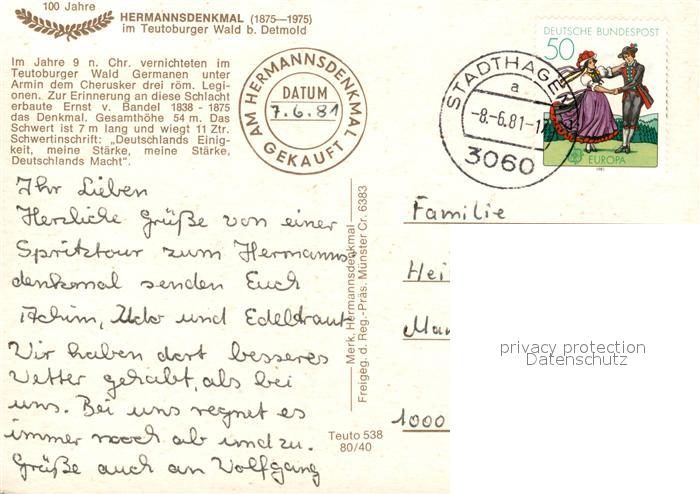 100 Jahre
HERMANNSDENKMAL (1875—1975)
im Teutoburger Wald b. Detmold
Im Jahre 9 n. Chr. vernichteten im
Teutoburger Wald Germanen unter
Armin dem Cherusker drei röm. Legi-
onen. Zur Erinnerung an diese Schlacht
erbaute Ernst v. Bandel 1838 - 1875
das Denkmal. Gesamthöhe 54 m. Das
Schwert ist 7 m lang und wiegt 11 Ztr.
Schwertinschrift: „Deutschlands Einig-
keit, meine Stärke, meine Stärke,
Deutschlands Macht".
AM HERMANNSDENKMAL
DATUM
7.6.81
GEKAUFT
STADTHAGEN
a
-8.-6.81-1
3060
DEUTSCHE BUNDESPOST
50
EUROPA
1981
Ihr Lieben
Herzliche Grüße von einer
Spritztour zum Hermanns-
denkmal senden Euch
Achim, Udo und Edeltraut
Wir haben dort besseres
Wetter gehabt, als bei
uns. Bei uns regnet es
immer noch ab und zu.
Grüße auch an Wolfgang
Merk. Hermannsdenkmal
Freigeg. d. Reg.-Präs. Münster Cr. 6383
Teuto 538
80/40
Familie
Hei
Mar
1000
privacy protection
Datenschutz